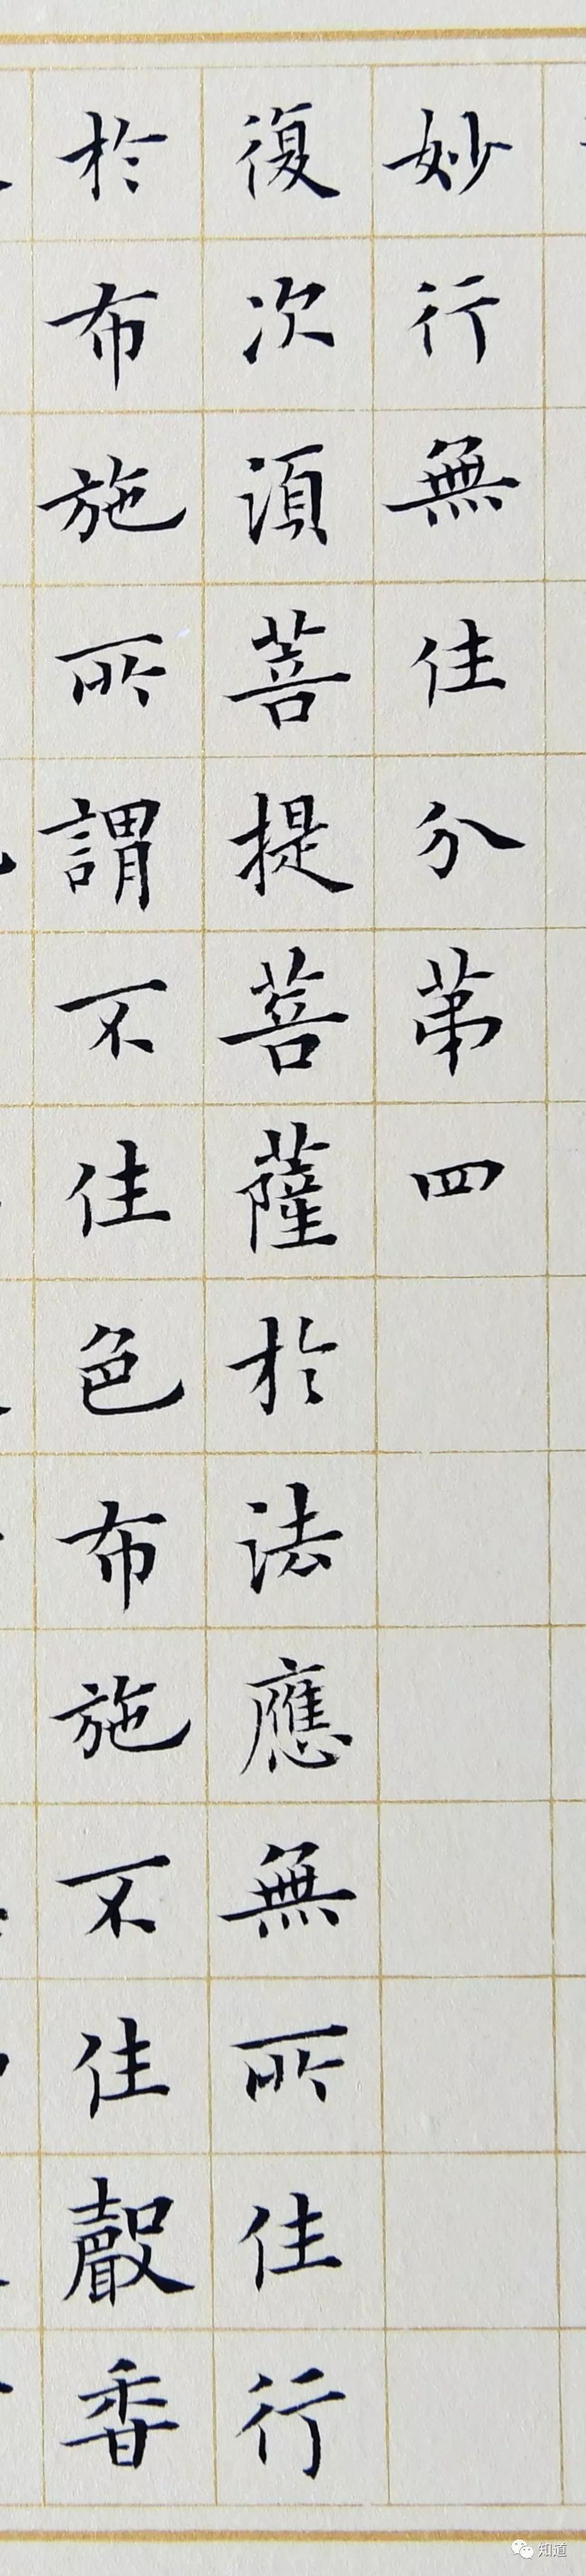 妙行無住分苐四
復次須菩提菩薩於法應無所住行
於布施所謂不住色布施不住聲香
知道